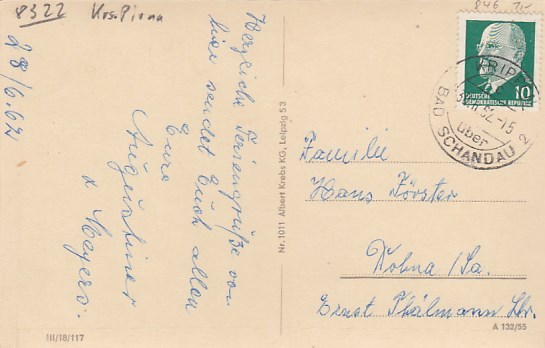 8322 Krs. Pirna
28/6.62
Herzliche Feriengrüße von
hier sendet Euch allen
Eure
Augustiner
& Meyers.
III/18/117
Nr. 1011 Albert Krebs KG, Leipzig 53
846
DEUTSCHE
DEMOKRATISCHE REPUBLIK
10
KRIP
über
BAD SCHANDAU 2
Familie
Hans Förster
Kohna/Sa.
Ernst Thälmann Str.
A 132/55